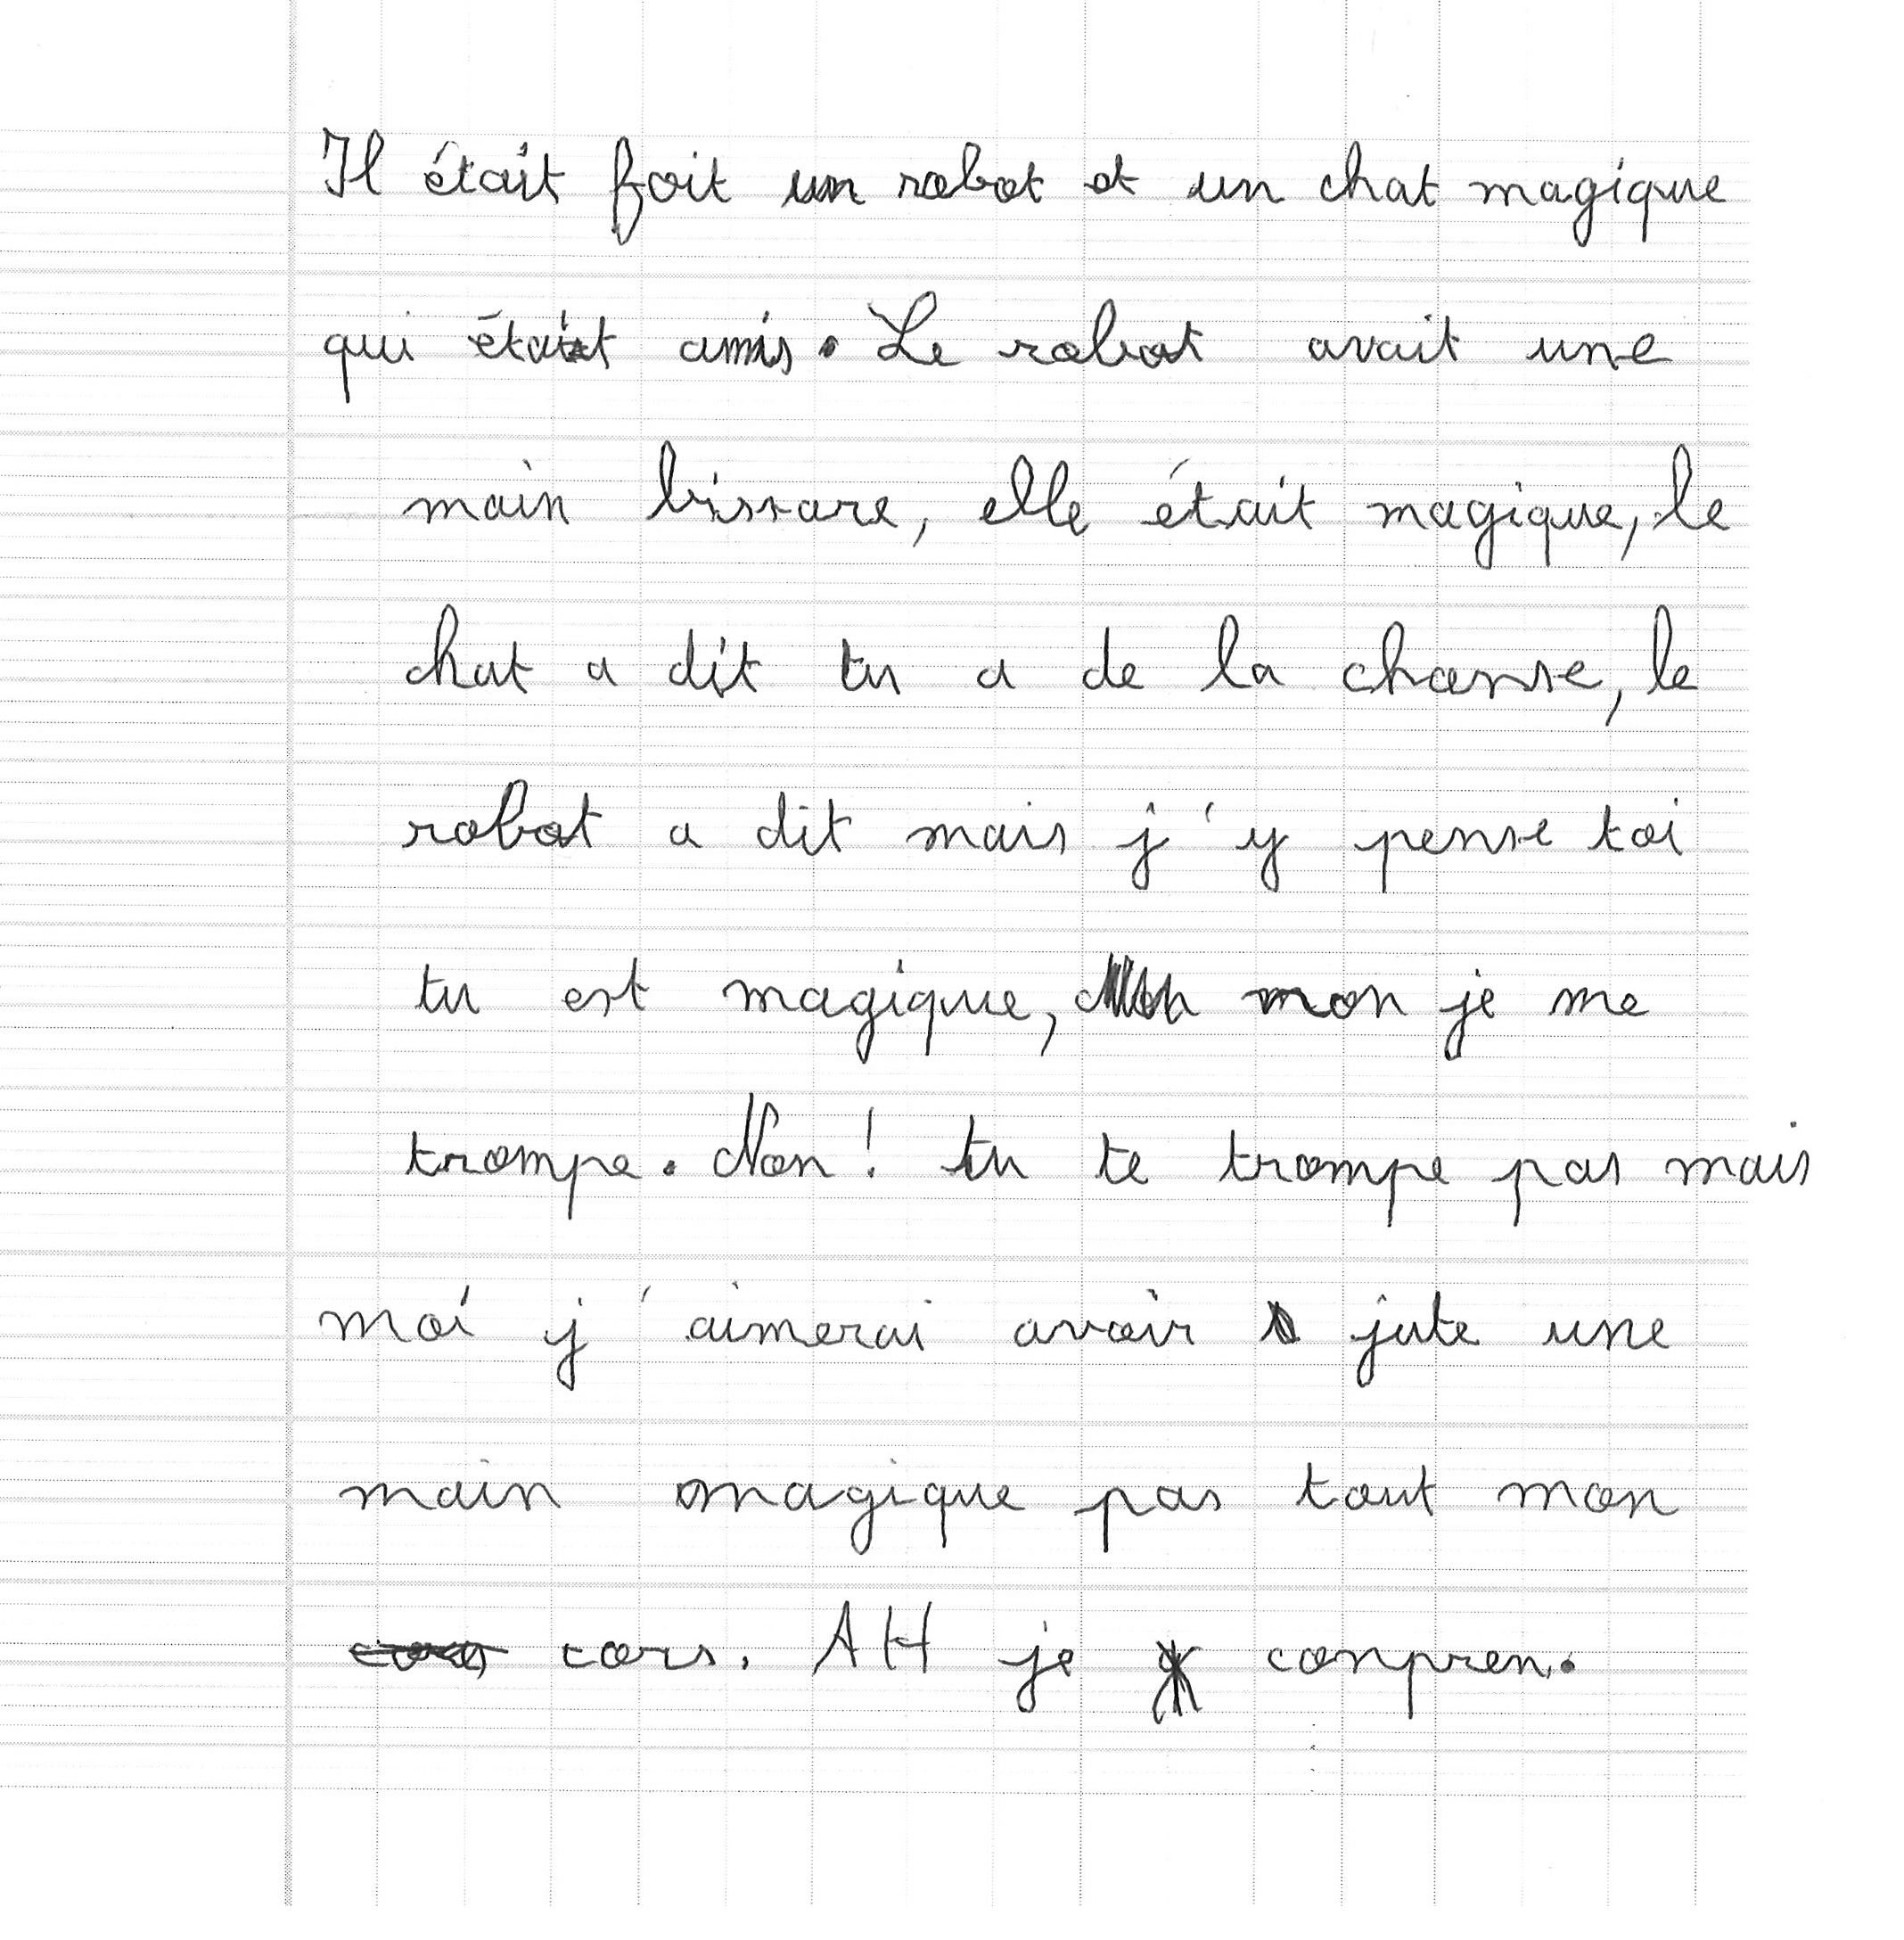 Il était foit un robot et un chat magique
qui était amis. Le robot avait une
main bissare, elle était magique, le
chat a dit tu a de la chanse, le
robot a dit mais j'y pense toi
tu est magique, mon je me
trompe. Non! tu te trompe pas mais
moi j'aimerai avoir jute une
main magique pas tout mon
cors. AH je conpren.